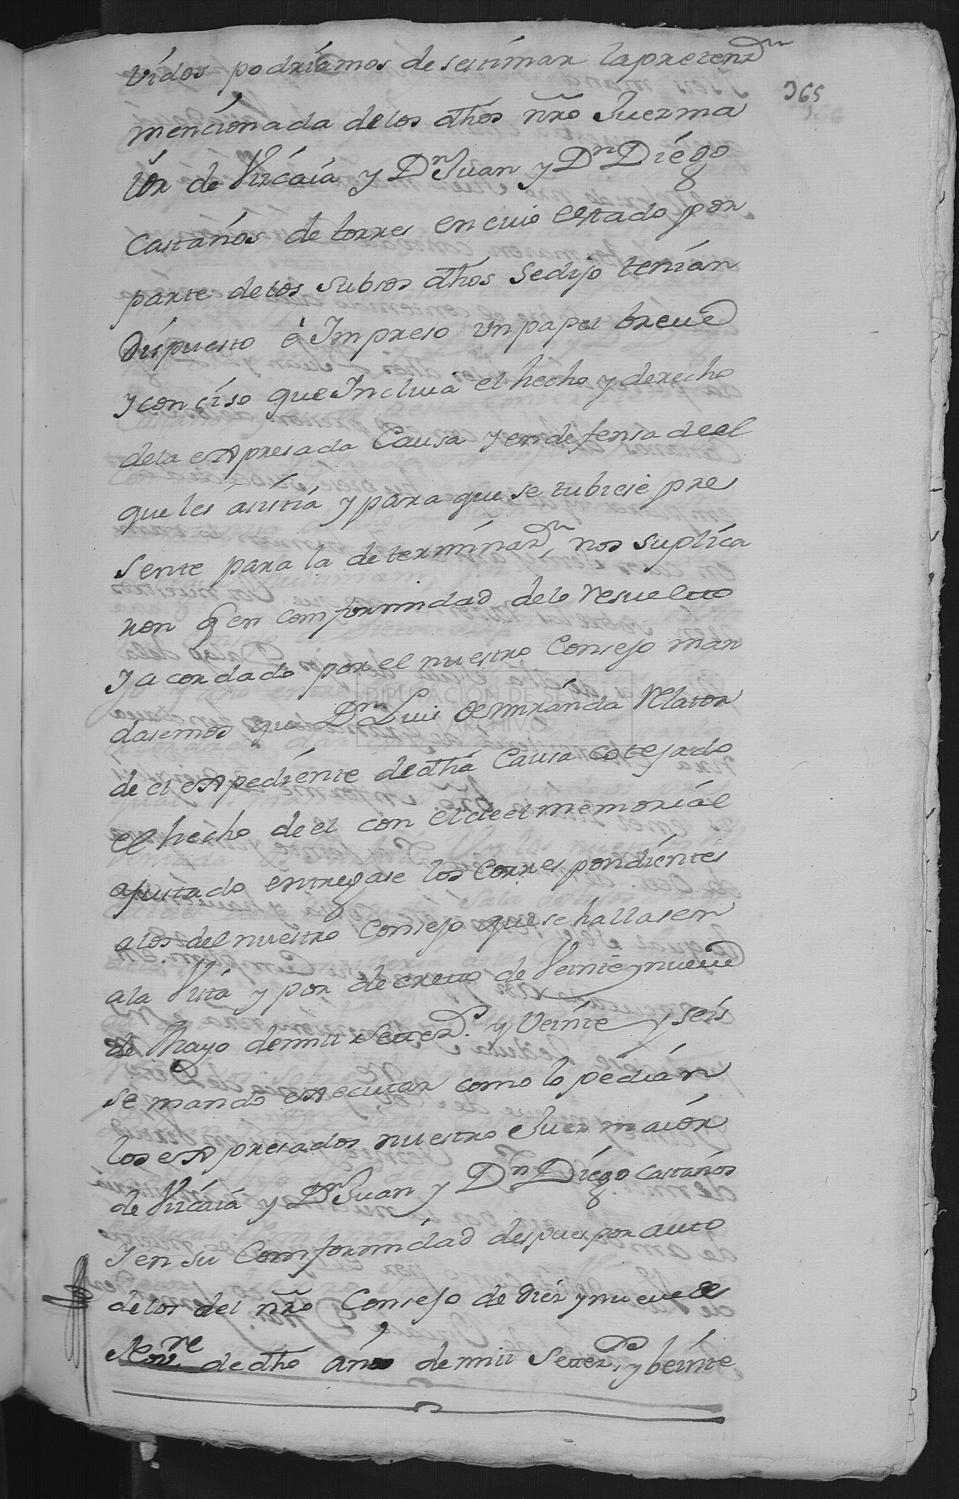 365
vidos podriamos desestimar la pretenzn
mencionada de los dhos nro Juez ma
ior de Vizcaia y Dn Juan y Dn Diego
Castaños de torres en cuio estado por
parte de los subso dhos se dijo tenian
Dispuesto è Impreso un papel breue
y conciso que Incluia el hecho y derecho
de la expresada Causa y en defensa de el
que les asistia y para que se tubiese pre
sente para la determinazn nos suplica
ron q en comformidad de lo Resueltto
y acordado por el nuestro Consejo man
dasemos que Dn Luis de miranda Relator
de el expediente de dha Causa cotejado
el hecho de el con el de el memorial
ajustado entregase los Correspondientes
a los del nuestro Consejo que se hallasen
a la Vista y por decretto de Veinte y nueue
de Mayo de mill Settezs y Veinte y seis
se mandò executar como lo pedian
los expresados nuestro Juez maior
de Vizcaia y Dn Juan y Dn Diego Castaños
y en su Comformidad despues por auto
de los del nro Consejo de diez y nueue de
re de dho año de mill Settezs y beinte
DIPUTACION DE
ARCHIVO